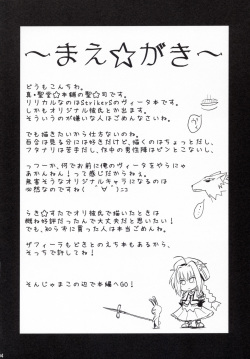 ～まえ☆がき～
どうもこんちわ。
真・聖堂☆本舗の聖☆司です。
リリカルなのはStrikerSのヴィータ本です。
しかもオリ彼氏とか出ます。
そういうのが嫌いな人はごめんなさいね。
でも描きたいから仕方ないのね。
百合は見る分には好きだけど、描くのはちょっとだし、
フタナリは苦手だし、作中の男性陣はピンとこないし、
っつーか、何でお前に俺のヴィータをやらにゃ
あかんねん！って感じだからねぇ。
無害そうなオリジナルキャラになるのは
必然なのですね(´∀｀)
らき☆すたでオリ彼氏で描いたときは
概ね好評だったんで大丈夫だと思いたい！
でも、知らずに買った人は本当ごめんね。
ザフィーラもどきとのえち本もあるから、
そっちで許してね！
そんじゃまこの辺で本編へGO！